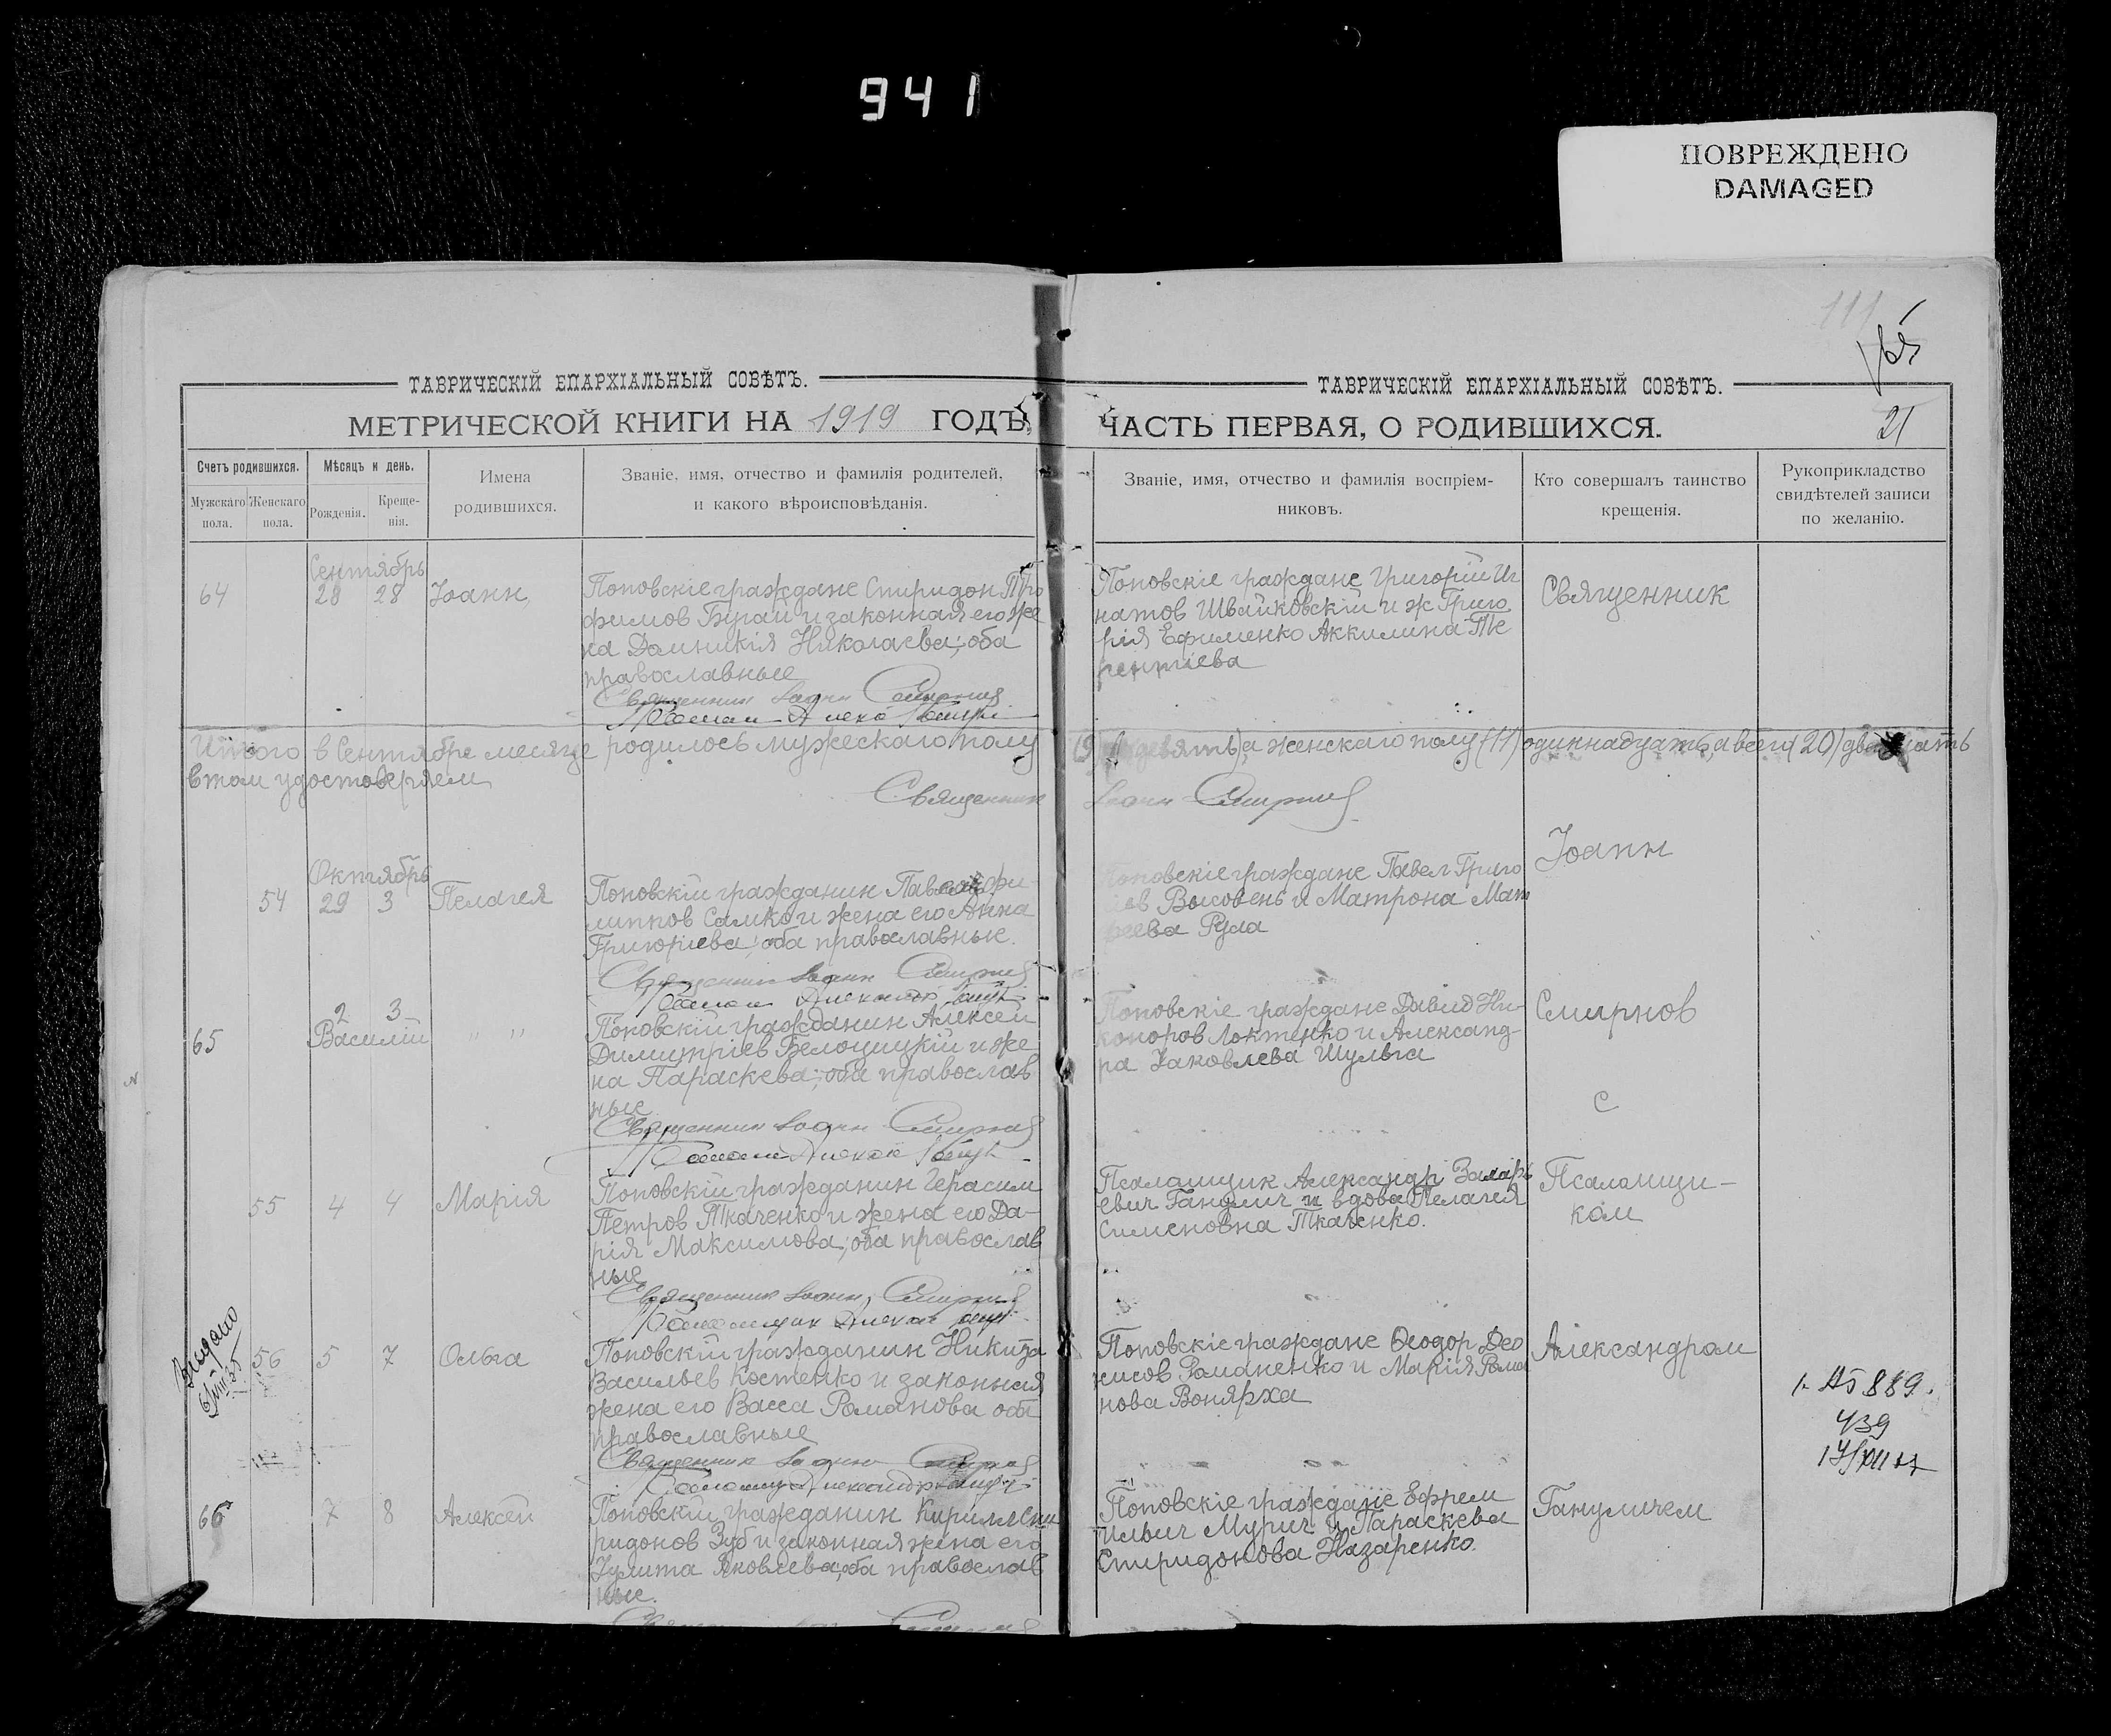 941
ПОВРЕЖДЕНО
DAMAGED
111
21
ТАВРИЧЕСКІЙ ЕПАРХІАЛЬНЫЙ СОВѢТЪ.
МЕТРИЧЕСКОЙ КНИГИ НА 1919 ГОДЪ,
Счетъ родившихся.
Мужскаго пола.
Женскаго пола.
Мѣсяцъ и день.
Рожденія.
Креще-
нія.
Имена
родившихся.
Званіе, имя, отчество и фамилія родителей,
и какого вѣроисповѣданія.
ТАВРИЧЕСКІЙ ЕПАРХІАЛЬНЫЙ СОВѢТЪ.
ЧАСТЬ ПЕРВАЯ, О РОДИВШИХСЯ.
Званіе, имя, отчество и фамилія воспріем-
никовъ.
Кто совершалъ таинство
крещенія.
Рукоприкладство
свидѣтелей записи
по желанію.
Сентябрь
64 28 28 Іоанн
Поповскіе граждане Спиридон Тро
фимов Бугай и законная его же
на Домникія Николаева; оба
православные
Священник Іоанн Смирнов
Поповскіе граждане Григорій Иг
натов Швайковскій и ж Григо
рія Ефименко Аккилина Те
рентіева
Священник
Итого в Сентябре месяце родилось мужескаго полу (9) девять, а женскаго полу (11) одиннадцать, а всего (20) двадцать
в том удостоверяем
Священник Іоанн Смирнов
Октябрь
54 29 3 Пелагея
Поповскій гражданин Павел Фи-
липпов Салко и жена его Анна
Григоріева; оба православные.
Священник Іоанн Смирнов
Поповскіе граждане Павел Григо
Высовень и Матрона Мат
феева Рула
Іоанн
2 3
65 Василій " "
Поповскій гражданин Алексей
Димитріев Белоцицкій и же
на Параскева; оба православ
ные
Священник Іоанн Смирнов
Поповскіе граждане Давид Ни-
коноров Локтенко и Александ-
ра Іаковлева Шульга
Смирнов
с
55 4 4 Марія
Поповскій гражданин Герасим
Петров Ткаченко и жена его Да-
рія Максимова; оба православ
ные
Священник Іоанн Смирнов
Псаломщик Александр Захарь
евич Ганулич и вдова Пелагея
Сименовна Ткаченко.
Псаломщи-
ком
Видано
56 5 7 Ольга
Поповскій гражданин Никита
Васильев Костенко и законная
жена его Васса Романова оба
православные
Священник Іоанн Смирнов
Поповскіе граждане Ѳеодор Део
нисов Романенко и Марія Рома
нова Вонярха
Александром
889.
439
66 7 8 Алексей
Поповскій гражданин Кирилл Спи
ридонов Зуб и законная жена его
Іулита Яковлева; оба православ
ные.
Поповскіе граждане Ефрем
Ильич Мурич и Параскева
Спиридонова Назаренко.
Гануличем